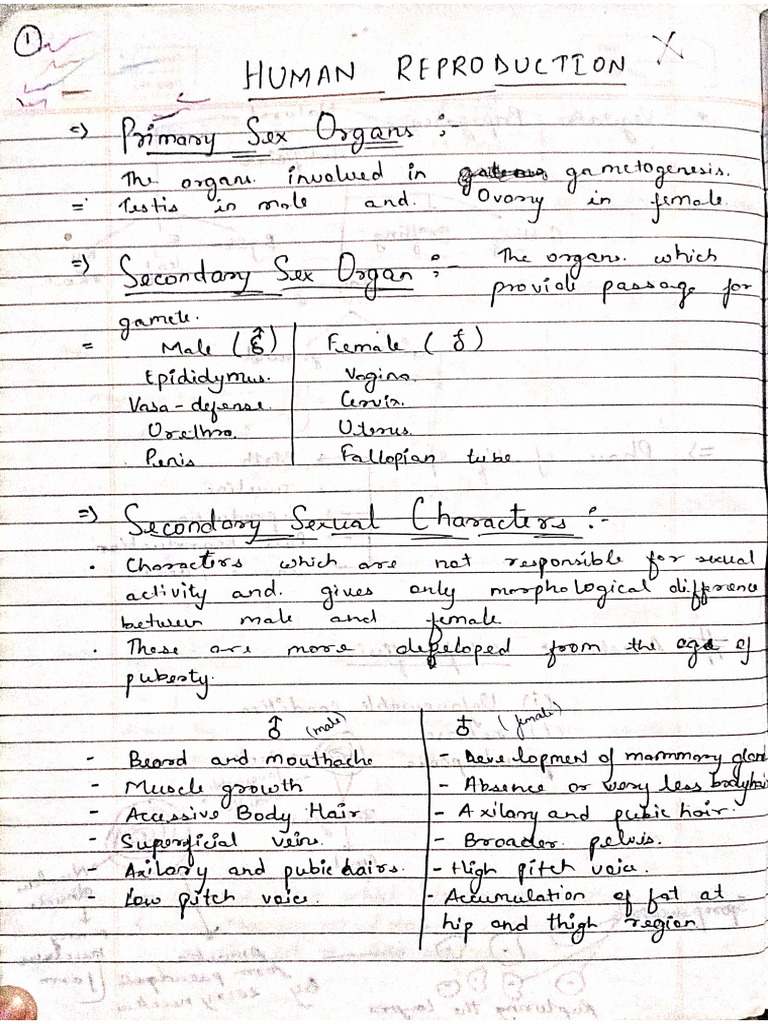 1
HUMAN REPRODUCTION
⇒ Primary Sex Organs :-
The organs involved in gametogenesis.
= Testis in male and Ovary in female.
⇒ Secondary Sex Organ :- The organs which
provide passage for
gamete.
= Male (♂) | Female (♀)
Epididymus. | Vagina.
Vasa-defense. | Cervix.
Urethra. | Uterus.
Penis | Fallopian tube
⇒ Secondary Sexual Characters :-
• Characters which are not responsible for sexual
activity and gives only morphological difference
between male and female
• These are more developed from the age of
puberty.
♂ (male) | ♀ (female)
- Beard and mouthache | - Development of mammary gland
- Muscle growth | - Absence or very less bodyhair
- Accessive Body Hair | - Axilary and pubic hair.
- Superficial veins. | - Broader pelvis.
- Axilary and pubic hairs. | - High pitch voice.
- Low pitch voice. | - Accumulation of fat at
hip and thigh region